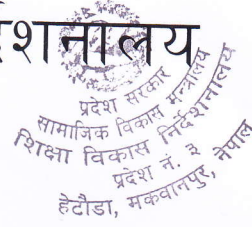 र्देशनालय
प्रदेश सरकार
सामाजिक विकास मन्त्रालय
शिक्षा विकास निर्देशनालय
प्रदेश नं. ३
हेटौंडा, मकवानपुर, नेपाल